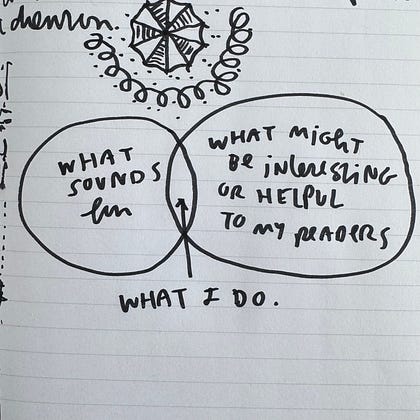 WHAT
SOUNDS
fun
WHAT MIGHT
BE INTERESTING
OR HELPFUL
TO MY READERS
WHAT I DO.